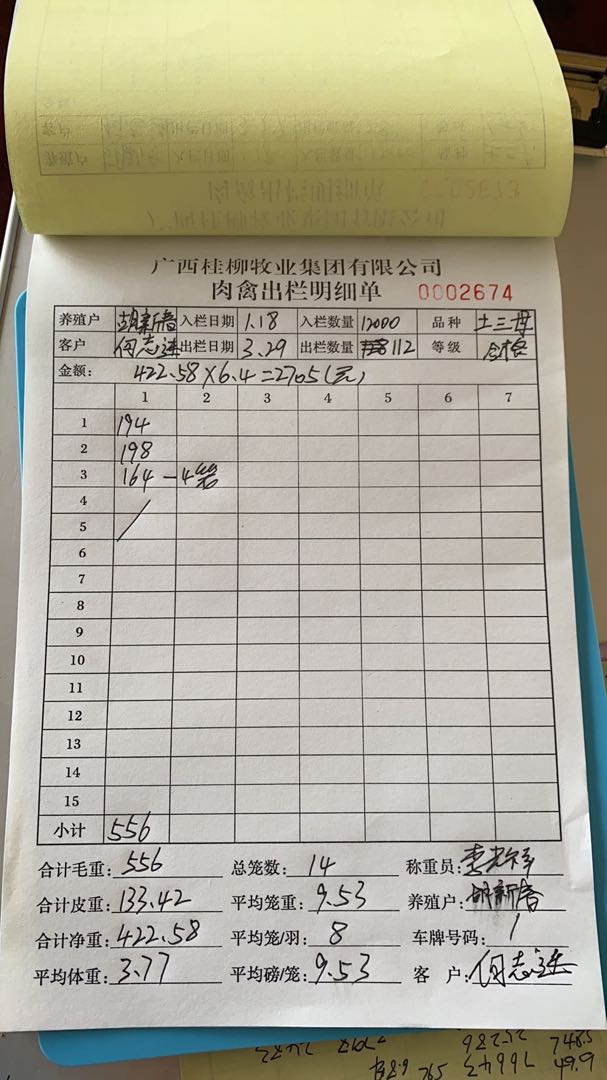 广西桂柳牧业集团有限公司
肉禽出栏明细单 0002674
养殖户 胡新春 入栏日期 1.18 入栏数量 12000 品种 土三母
客户 何志连 出栏日期 3.29 出栏数量 112 等级 合格
金额: 422.58×6.4=2705(元)
1 2 3 4 5 6 7
1 194
2 198
3 164 -4笼
4
5
6
7
8
9
10
11
12
13
14
15
小计 556
合计毛重: 556 总笼数: 14 称重员:
合计皮重: 133.42 平均笼重: 9.53 养殖户: 胡新春
合计净重: 422.58 平均笼/羽: 8 车牌号码: 1
平均体重: 3.77 平均磅/笼: 9.53 客 户: 何志连